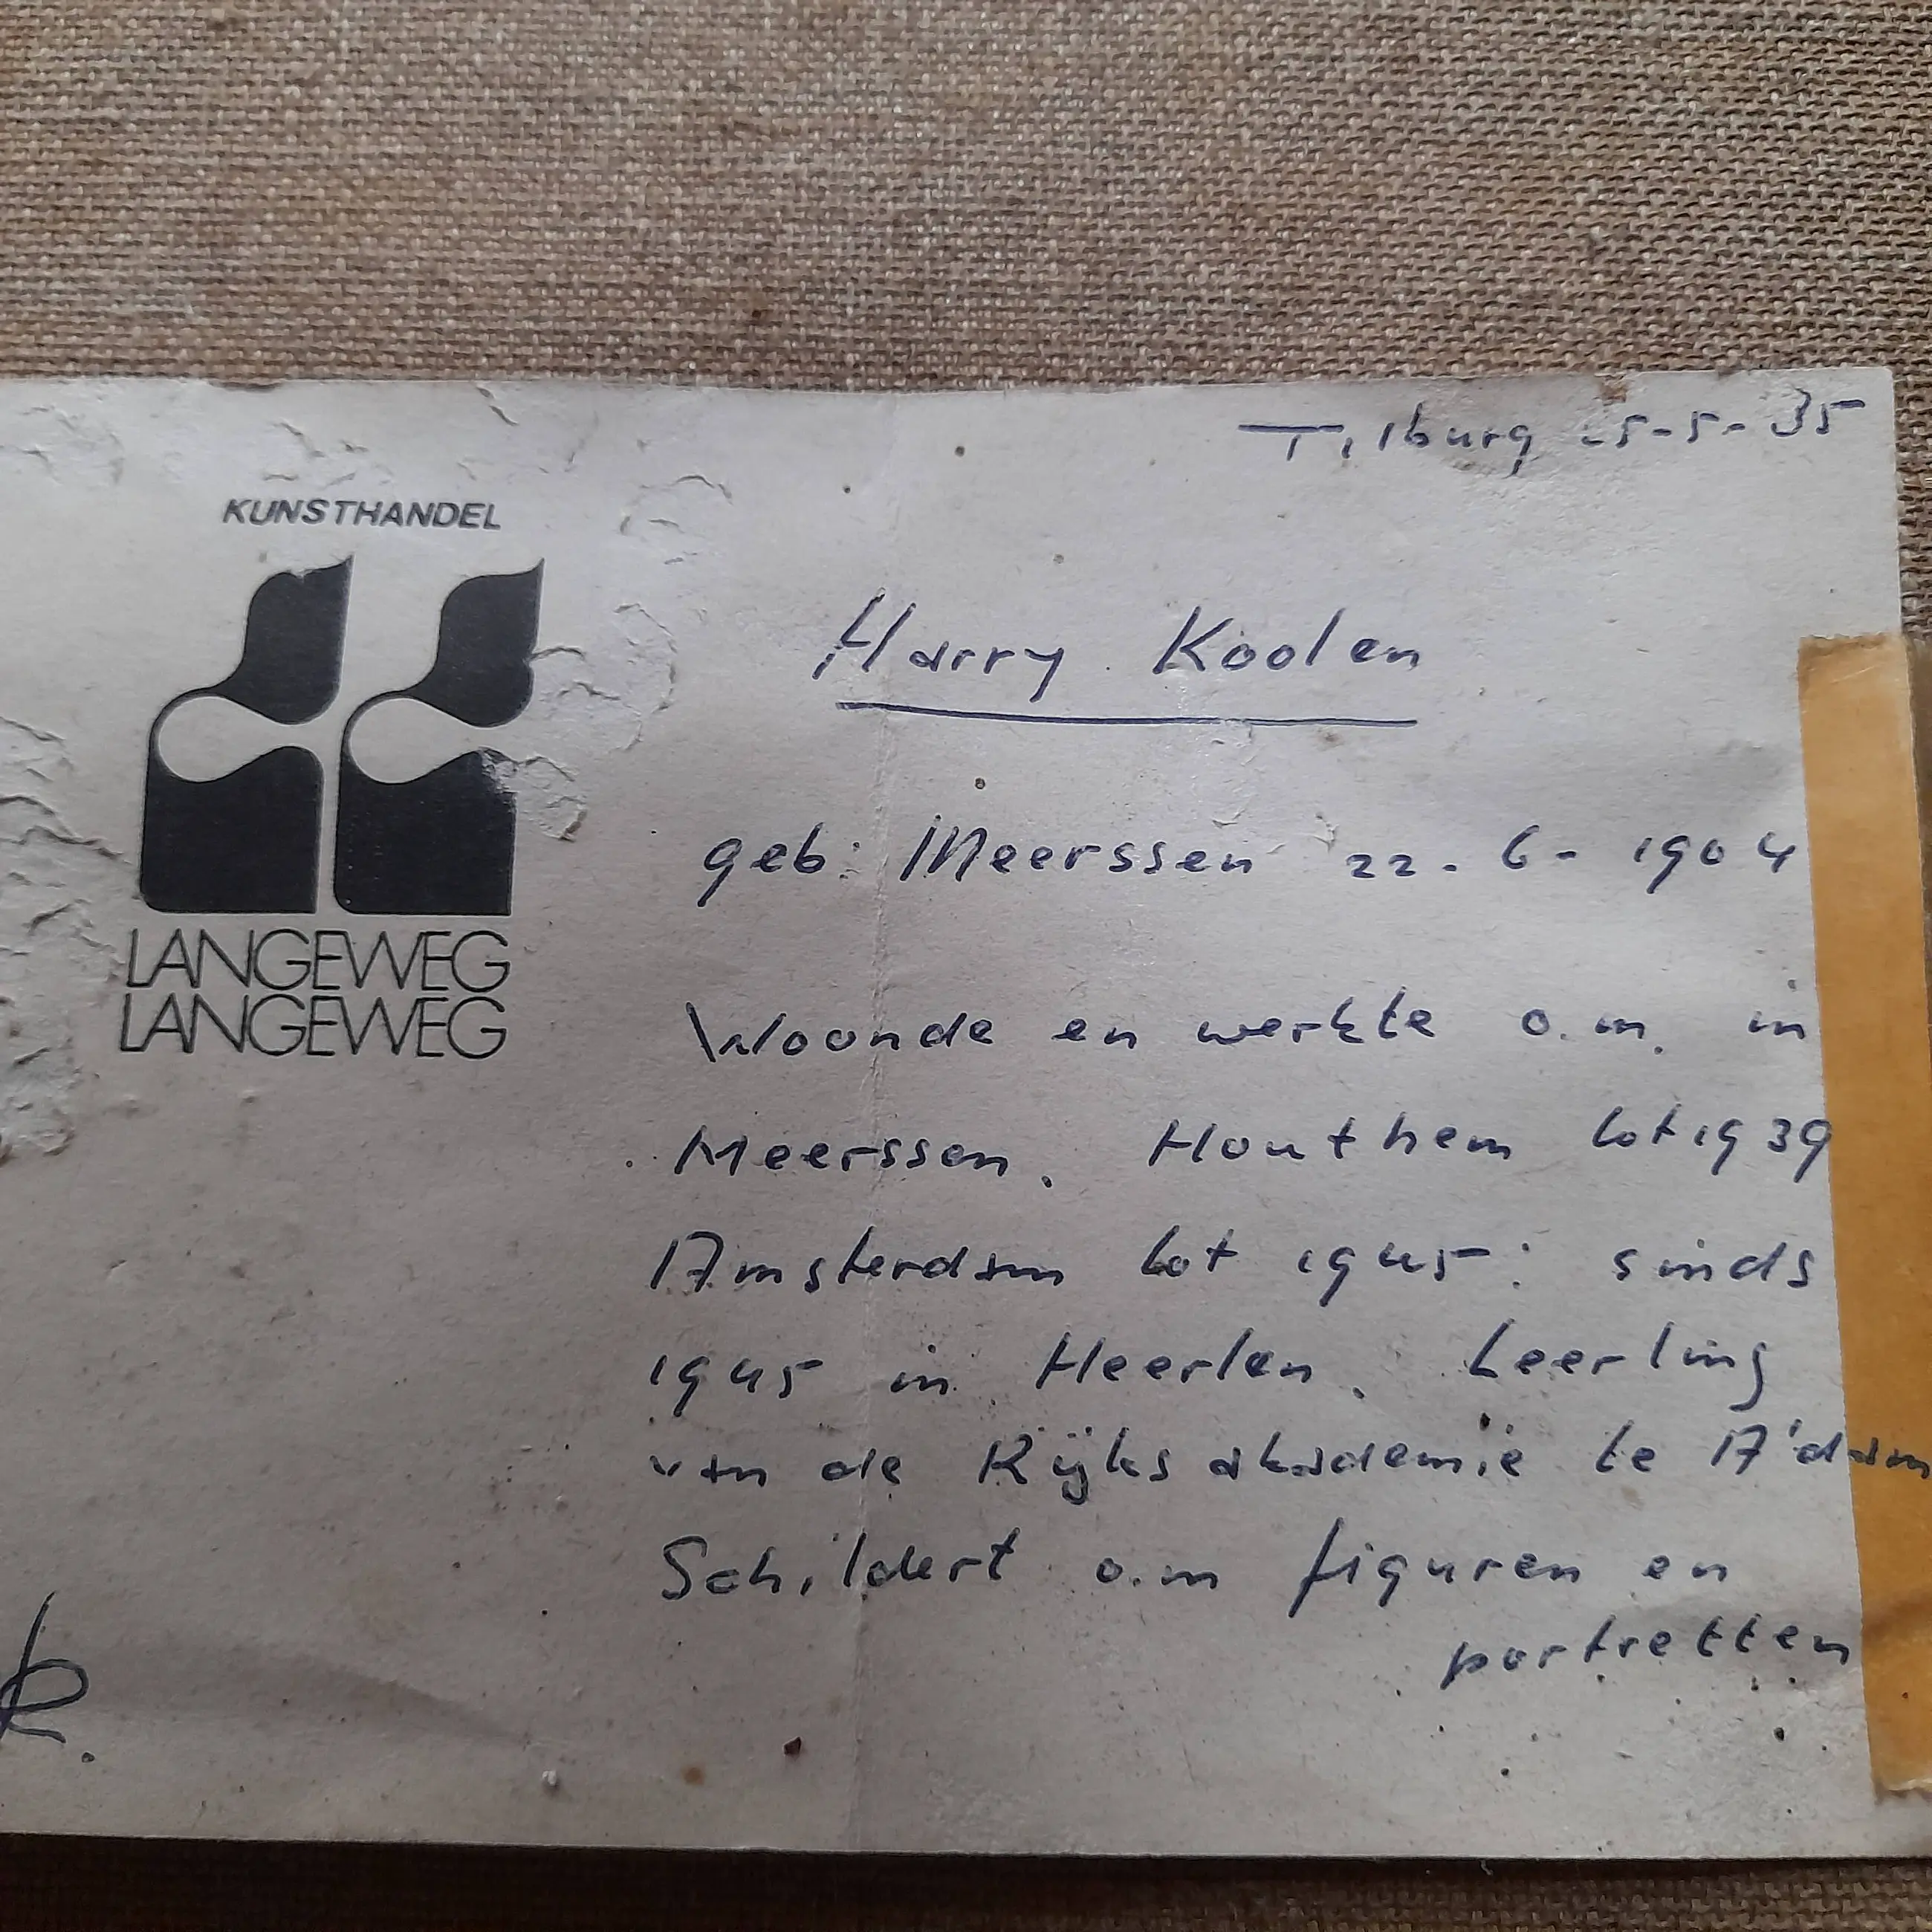 Tilburg 25-5-35
KUNSTHANDEL
LANGEWEG
LANGEWEG
Harry Koolen
geb: Meerssen 22-6-1904
Woonde en werkte o.m. in
Meerssen. Houthem tot 1939
Amsterdam tot 1945: sinds
1945 in Heerlen. Leerling
van de Rijksakademie te A'dam
Schildert o.m figuren en
portretten